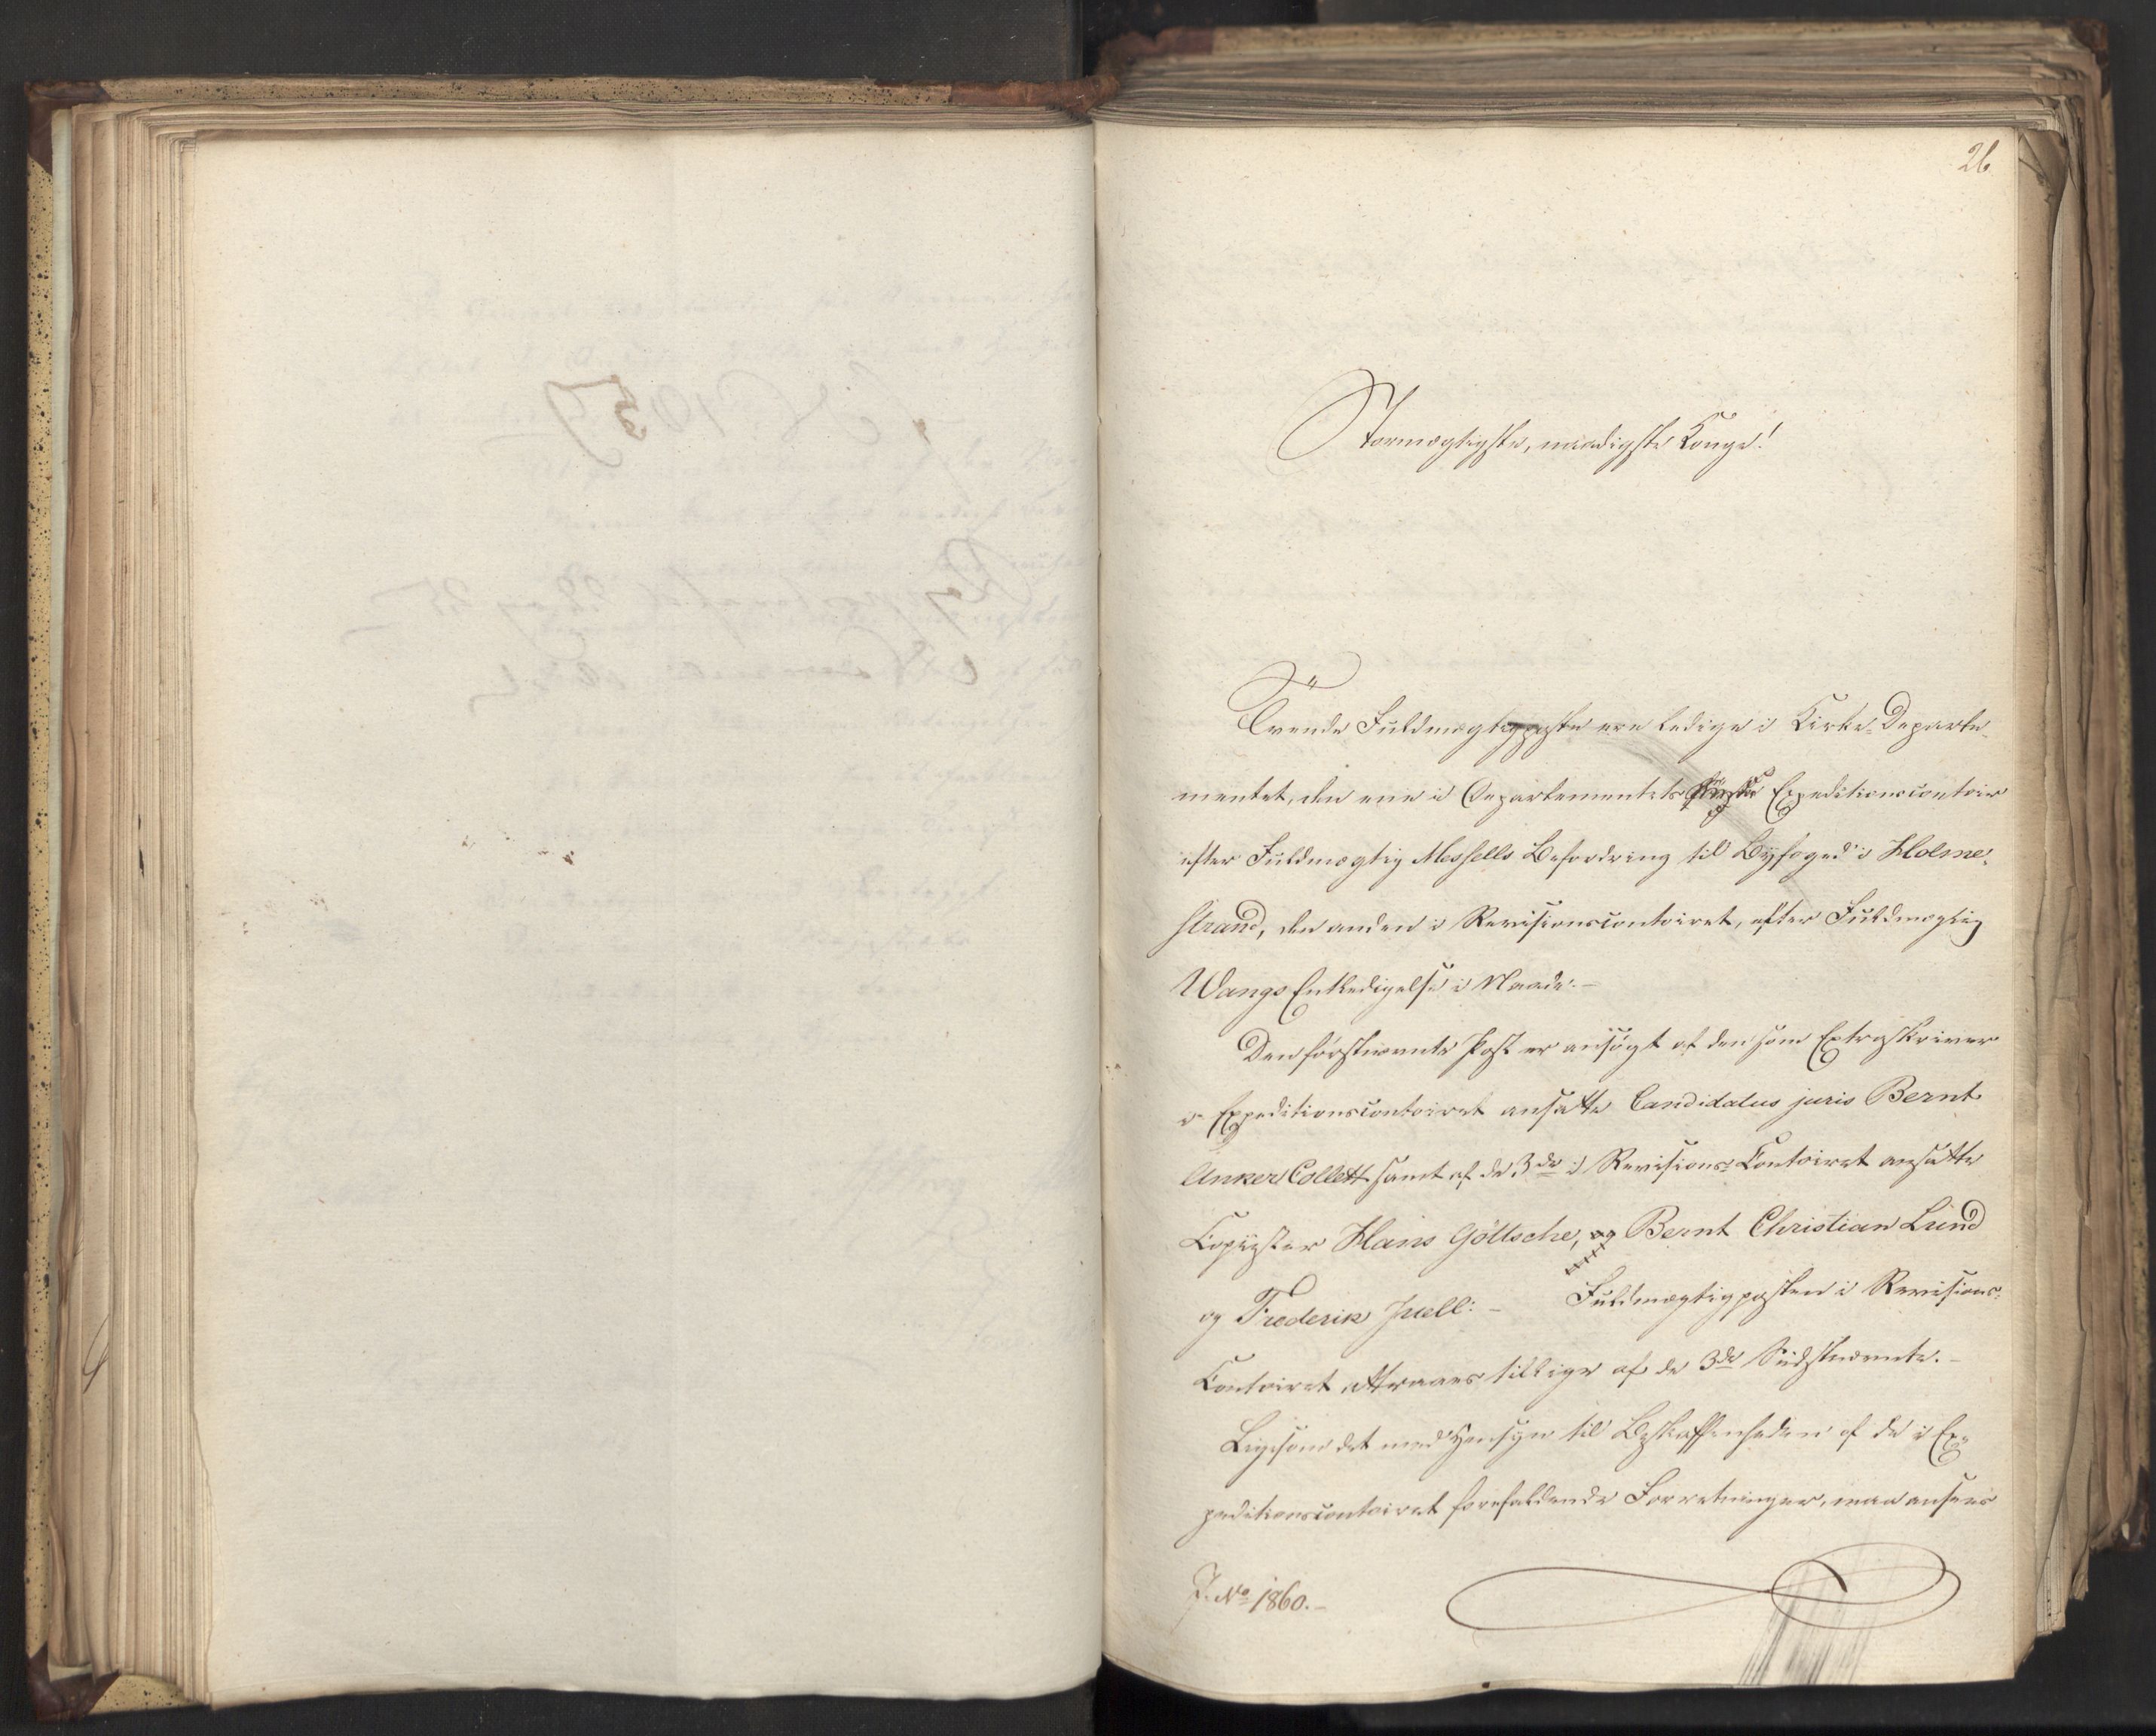 26.
Stormægtigste, naadigste Konge!
Tvende Fuldmægtigposter ere ledige i Kirke-Departe-
mentet, den ene i Departementets Expeditionscontoir
efter Fuldmægtig Messells Befordring til Byfoged i Holme-
strand, den anden i Revisionscontoiret, efter Fuldmægtig
Wangs Entledigelse i Naade.-
Den førstnævnte Post er ansøgt af den som Extraskriver
i Expeditionscontoiret ansatte Candidatus juris Bernt
Anker Collett samt af de 3de i Revisions-Contoiret ansatte
Copiister Hans Göttsche, og Bernt Christian Lund
og Frederik Juell:- Fuldmægtigposten i Revisions-
Contoiret attraaes tillige af de 3de Sidstnævnte.-
Ligesom det med Hensyn til Beskaffenheden af de i Ex-
peditionscontoiret forefaldende Forretninger, maa ansees
J. No 1860.-